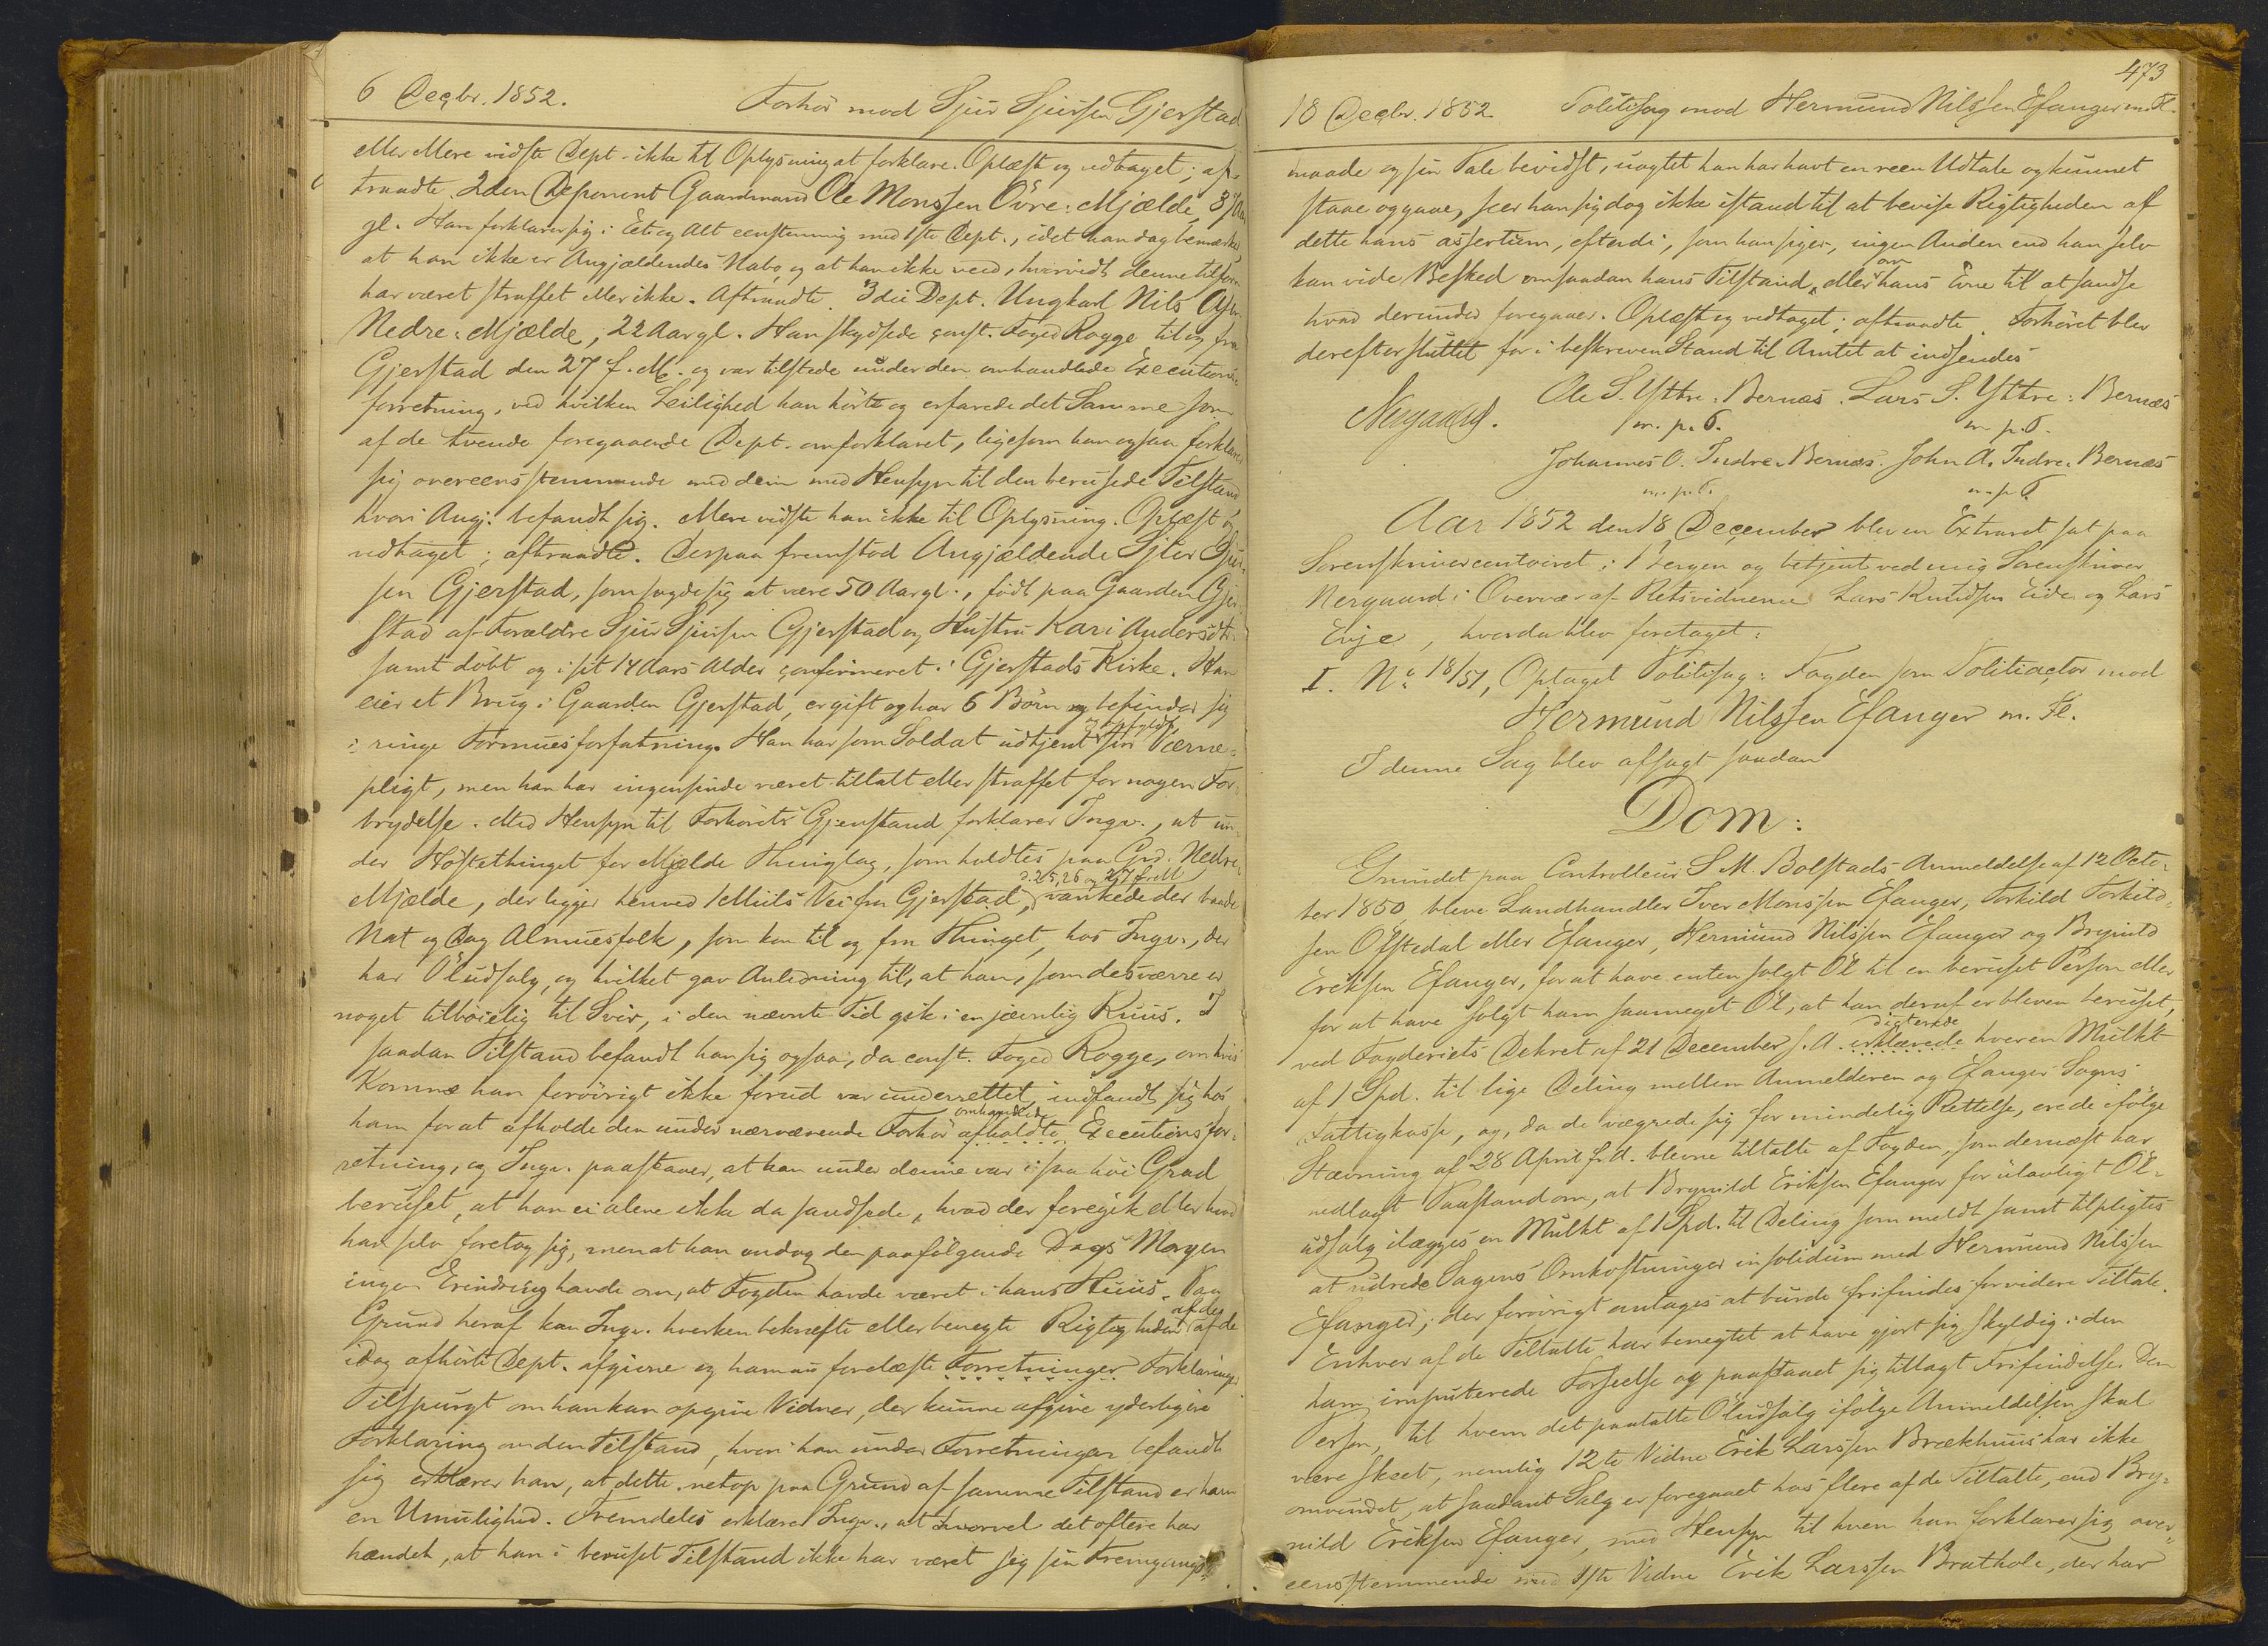 6 Decbr. 1852. Forhör mod Sjur Sjursen Gjerstad
eller Mere vidste Dept. ikke til Oplysning at forklare. Oplæst og vedtaget; af-
traadte. 2den Deponent Gaardmand Ole Monssen Övre-Mjælde, 37 Aar
gl. Han forklarer sig i Et og Alt eenstemmig med 1ste Dept., idet han dog bemærker
at han ikke er Angjældendes Nabo, og at han ikke veed, hvorvidt denne tilforn
har været straffet eller ikke. Aftraadte. 3die Dept. Ungkarl Nils
Nedre-Mjælde, 22 Aar gl. Han skydsede const. Foged Rogge til og fra
Gjerstad den 27 f. M. og var tilstede under den omhandlede Executions-
forretning, ved hvilken Leilighed han hörte og erfarede det Samme som
af de tvende foregaaende Dept. omforklaret, ligesom han ogsaa forklarer
sig overeensstemmende med dem med Hensyn til den berusede Tilstand
hvori Angj. befandt sig. Mere vidste han ikke til Oplysning. Oplæst og
vedtaget; aftraadte. Derpaa fremstod Angjældende Sjur Sjur-
sen Gjerstad, som sagde sig at være 50 Aar gl., födt paa Gaarden Gjer-
stad af Forældre Sjur Sjursen Gjerstad og Hustru Kari Andersdtr.
samt döbt og i sit 14 Aars Alder confirmeret i Gjerstads Kirke. Han
eier et Brug i Gaarden Gjerstad, er gift og har 6 Börn og befinder sig
i ringe Formuesforfatning. Han har som Soldat udtjent og opfyldt sin Værne-
pligt, men han har ingensinde været tiltalt eller straffet for nogen For-
brydelse. Med Hensyn til Forhörets Gjenstand forklarer Inqv., at un-
der Höstethinget for Mjælde Thinglag, som holdtes paa Grd. Nedre-
Mjælde, der ligger henved 1 Miils Vei fra Gjerstad, d. 25, 26 og 27 f. M. vankede der baade
Nat og Dag Almuesfolk, som kom til og fra Thinget, hos Inqv., der
har Öludsalg, og hvilket gav Anledning til, at han, som desværre er
noget tilböielig til Svir, i den nævnte Tid gik i en jævnlig Ruus. I
saadan Tilstand befandt han sig ogsaa, da const. Foged Rogge, om hvis
Komme han forövrigt ikke forud var underrettet, indfandt sig hos
ham for at afholde den under nærværende Forhör afholdte omhandlede Executionsfor-
retning, og Inqv. paastaaer, at han under denne var i saa höi Grad
beruset, at han ei alene ikke da sandsede, hvad der foregik eller hvad
han selv foretog sig, men at han endog den paafölgende Dags Morgen
ingen Erindring havde om, at Fogden havde været i hans Huus. Paa
Grund heraf kan Inqv. hverken bekræfte eller benegte Rigtigheden af de af de
idag afhörte Dept. afgivne og ham nu forelæste Forretninger Forklaringer
Tilspurgt om han kan opgive Vidner, der kunne afgive yderligere
Forklaring om den Tilstand, hvori han under Forretningen befandt
sig erklærer han, at dette netop paa Grund af samme Tilstand er ham
en Umulighed. Fremdeles erklærer Inqv., at hvorvel det oftere har
hændet, at han i beruset Tilstand ikke har været sig sin Fremgangs-
473
18 Decbr. 1852. Politisag mod Hermund Nilssen Efanger m. Fl.
maade og sin Tale bevidst, uagtet han har havt en reen Udtale og kunnet
staae og gaae, seer han sig dog ikke istand til at bevise Rigtigheden af
dette hans assertum, efterdi, som han siger, ingen Anden end han selv
kan vide Besked om saadan hans Tilstand, eller om hans Evne til at sandse
hvad derunder foregaaer. Oplæst og vedtaget; aftraadte. Forhöret blev
derefter sluttet for i beskreven Stand til Amtet at indsendes
Nergaard. Ole S. Yttre-Bernæs. Lars S. Yttre-Bernæs
m. p. P. m. p. P.
Johannes O. Indre-Bernæs. John A. Indre-Bernæs
m. p. P. m. p. P.
Aar 1852 den 18 December blev en Extraret sat paa
Sorenskrivercontoiret i Bergen og betjent ved mig Sorenskriver
Nergaard i Overvær af Retsvidnerne Lars Knudsen Eide og Lars
Eije, hvorda blev foretaget:
I. No. 18/51, Optaget Politisag: Fogden som Politiactor mod
Hermund Nilssen Efanger m. Fl.
I denne Sag blev afsagt saadan
Dom:
Grundet paa Controlleur S. M. Bolstads Anmeldelse af 12 Octo-
ber 1850, bleve Landhandler Iver Monssen Efanger, Torkild Torkild-
sen Öfstedal eller Efanger, Hermund Nilssen Efanger og Brynild
Eriksen Efanger, for at have enten solgt Öl til en beruset Person eller
for at have solgt ham saameget Öl, at han deraf er bleven beruset,
ved Fogderiets Dekret af 21 December s. A. erklærede dicterede hver en Mulkt
af 1 Spd. til lige Deling mellem Anmelderen og Efanger Sogns
Fattigkasse, og, da de vægrede sig for mindelig Rettelse, ere de ifölge
Stævning af 28 April f. A. blevne tiltalte af Fogden, som dernæst har
nedlagt Paastand om, at Brynild Eriksen Efanger for ulovligt Öl-
udsalg ilægges en Mulkt af 1 Spd. til Deling som meldt samt tilpligtes
at udrede Sagens Omkostninger in solidum med Hermund Nilssen
Efanger, der forövrigt antages at burde frifindes for videre Tiltale.
Enhver af de Tiltalte har benegtet at have gjort sig skyldig i den
ham imputerede Forseelse og paastaaet sig tillagt Frifindelse. Den
Person, til hvem det paatalte Öludsalg ifölge Anmeldelsen skal
være skeet, nemlig 12te Vidne Erik Larssen Brækhuus har ikke
omvundet, at saadant Salg er foregaaet hos flere af de Tiltalte, end Bry-
nild Eriksen Efanger, med Hensyn til hvem han forklarer sig over-
eensstemmende med 1ste Vidne Erik Larssen Brathole, der har